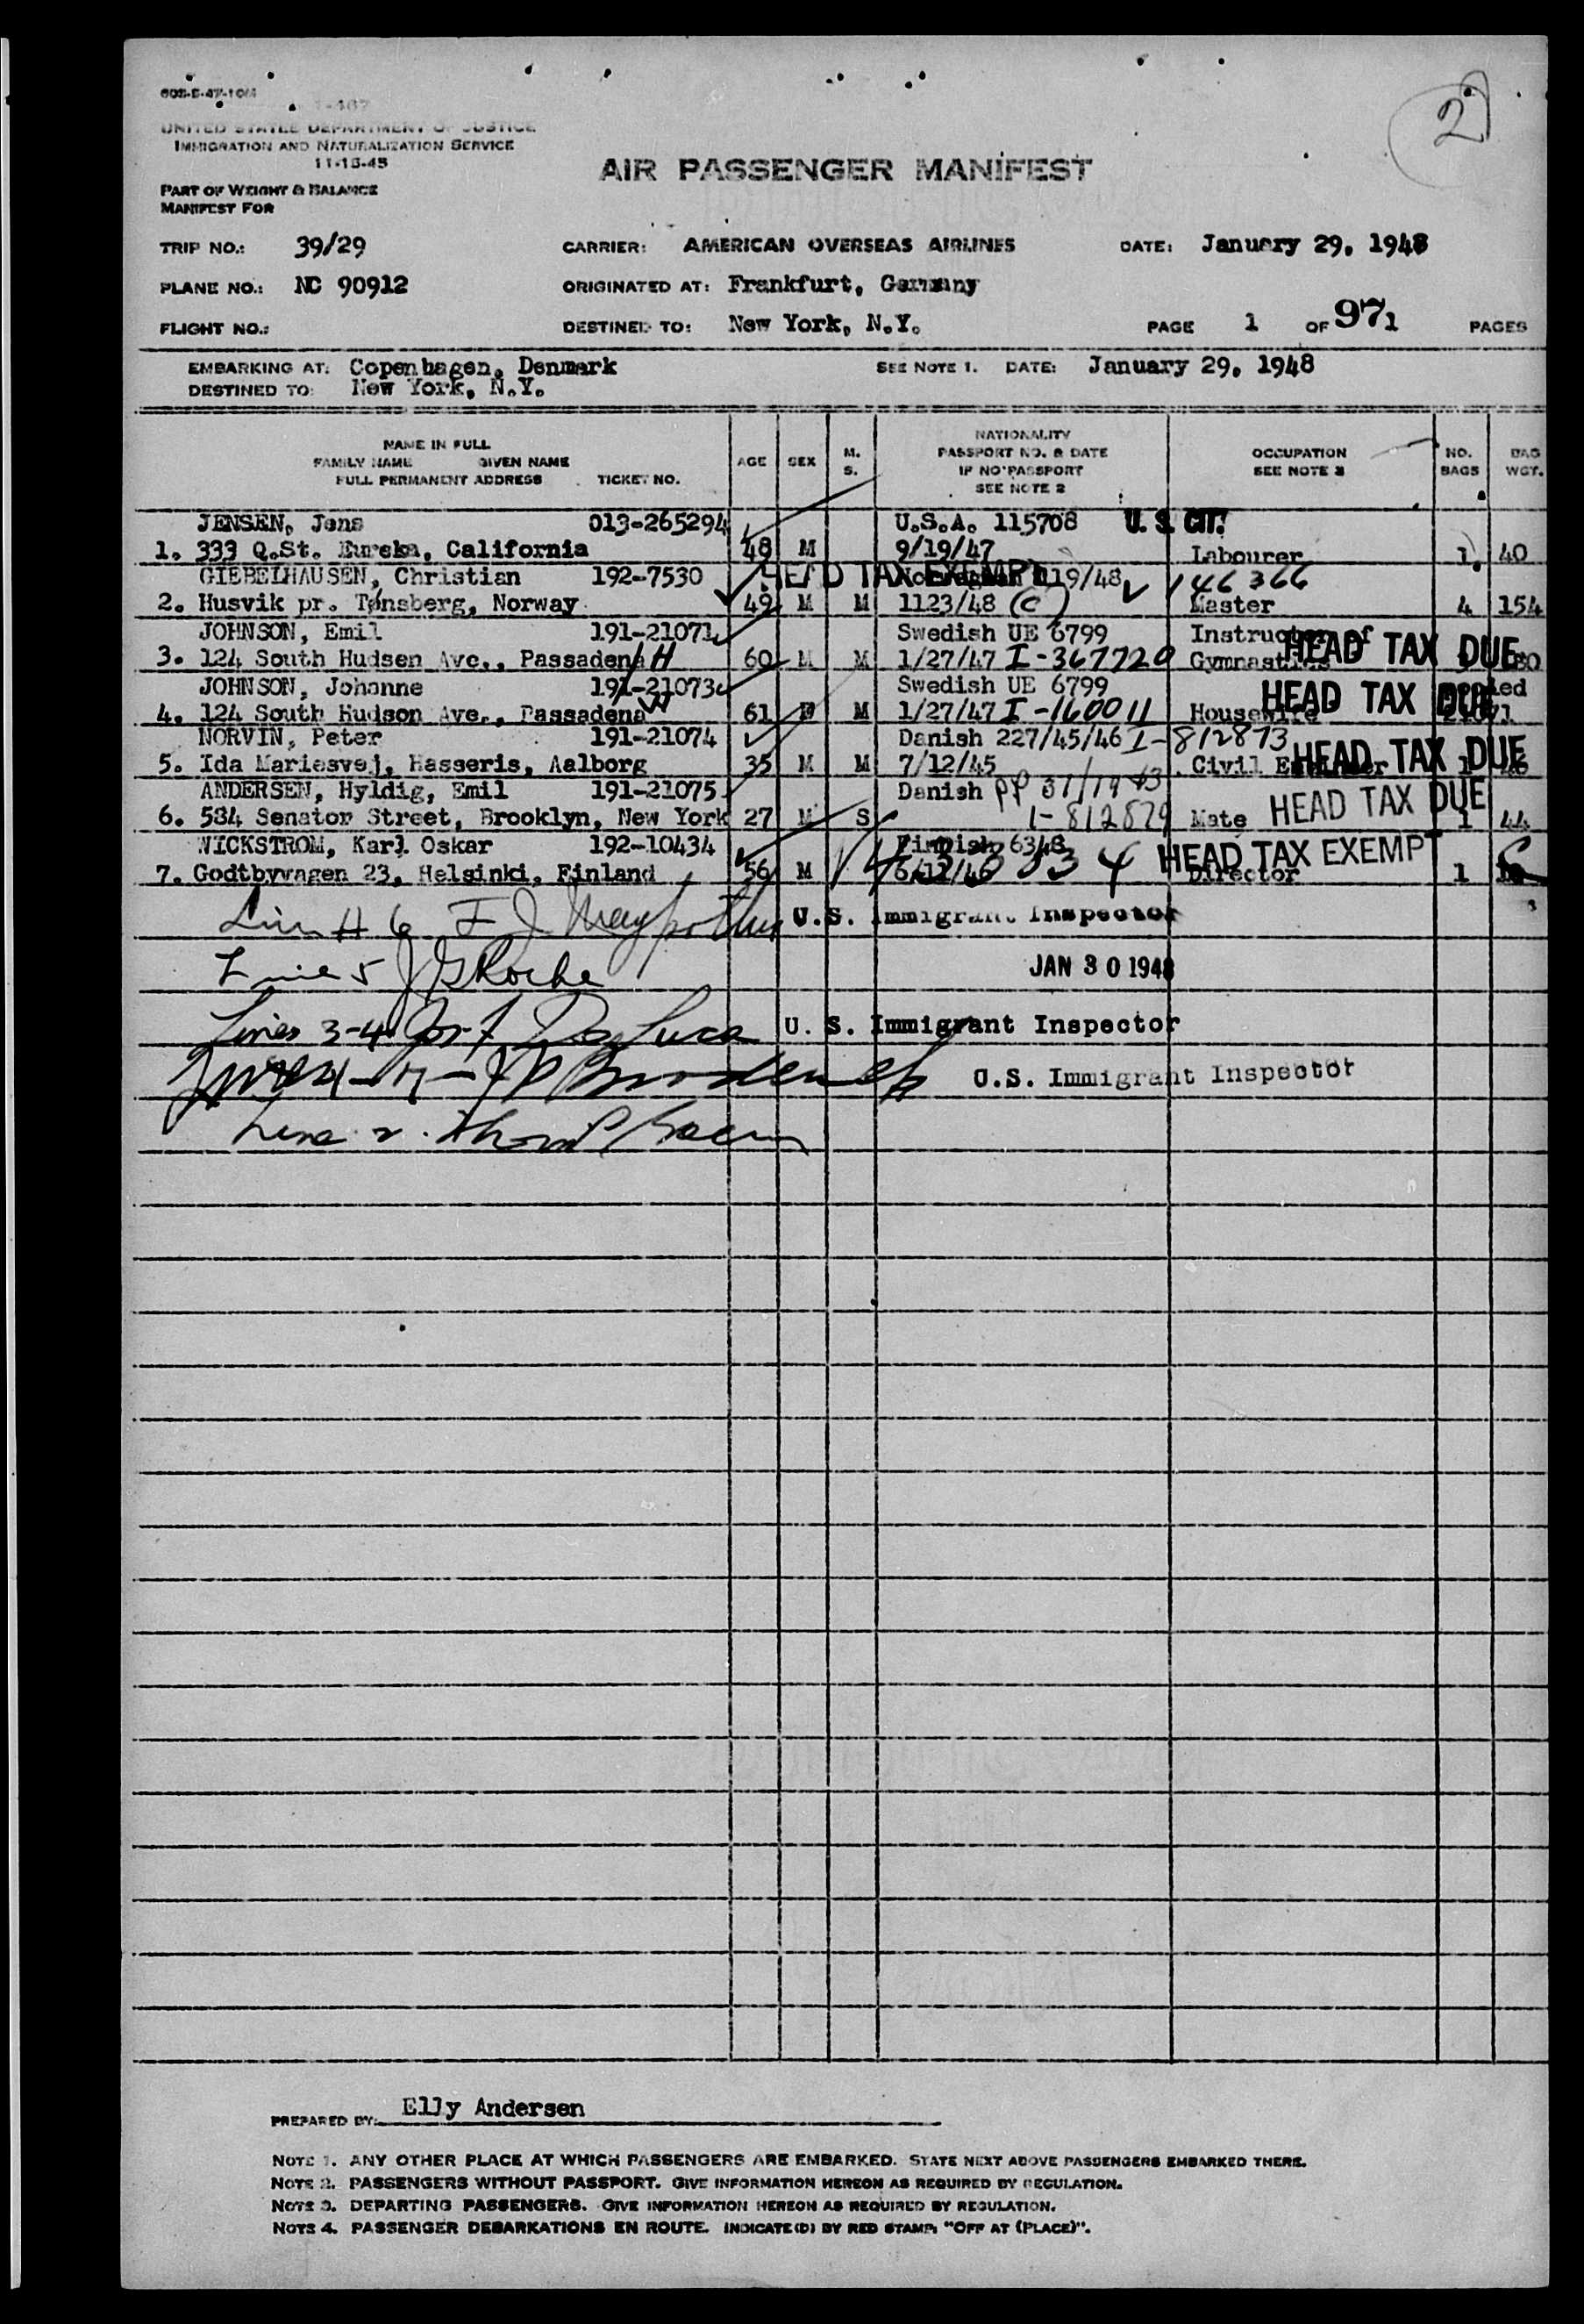 2
UNITED STATES DEPARTMENT OF JUSTICE
IMMIGRATION AND NATURALIZATION SERVICE
11-15-45
AIR PASSENGER MANIFEST
PART OF WEIGHT & BALANCE
MANIFEST FOR
TRIP NO.: 39/29 CARRIER: AMERICAN OVERSEAS AIRLINES DATE: January 29, 1948
PLANE NO.: NC 90912 ORIGINATED AT: Frankfurt, Germany
FLIGHT NO.: DESTINED TO: New York, N.Y. PAGE 1 OF 971 PAGES
EMBARKING AT: Copenhagen, Denmark SEE NOTE 1. DATE: January 29, 1948
DESTINED TO: New York, N.Y.
NAME IN FULL
FAMILY NAME GIVEN NAME
FULL PERMANENT ADDRESS TICKET NO. AGE SEX M. S.
NATIONALITY
PASSPORT NO. & DATE
IF NO PASSPORT
SEE NOTE 2
OCCUPATION
SEE NOTE 3
NO. BAGS
BAG WGT.
JENSEN, Jens 013-265294 U.S.A. 115708 U. S. CIT.
1. 333 Q.St. Eureka, California 48 M 9/19/47 Labourer 1 40
GIEBELHAUSEN, Christian 192-7530 HEAD TAX EXEMPT Norwegian 119/48 146366
2. Husvik pr. Tønsberg, Norway 49 M M 1123/48 (C) Master 4 154
JOHNSON, Emil 191-21071 Swedish UE 6799 Instructor of
3. 124 South Hudsen Ave., Passadena H 60 M M 1/27/47 I-367720 Gymnastics HEAD TAX DUE
JOHNSON, Johanne 191-21073 Swedish UE 6799
4. 124 South Hudson Ave., Passadena W 61 F M 1/27/47 I-160011 Housewife HEAD TAX DUE
NORVIN, Peter 191-21074 Danish 227/45/46 I-812873
5. Ida Mariesvej, Hasseris, Aalborg 35 M M 7/12/45 Civil Engineer HEAD TAX DUE 1
ANDERSEN, Hyldig, Emil 191-21075 Danish PP 31/19 43
6. 534 Senator Street, Brooklyn, New York 27 M S 1-812879 Mate HEAD TAX DUE 1 44
WICKSTROM, Karl Oskar 192-10434 Finnish 6348 HEAD TAX EXEMPT
7. Godtbyvagen 23, Helsinki, Finland 56 M Director 1
Line 6 F J U.S. Immigrant Inspector
Line 5 J G Roche JAN 30 1948
Lines 3-4 U. S. Immigrant Inspector
U.S. Immigrant Inspector
Line 2.
PREPARED BY: Elly Andersen
NOTE 1. ANY OTHER PLACE AT WHICH PASSENGERS ARE EMBARKED. STATE NEXT ABOVE PASSENGERS EMBARKED THERE.
NOTE 2. PASSENGERS WITHOUT PASSPORT. GIVE INFORMATION HEREON AS REQUIRED BY REGULATION.
NOTE 3. DEPARTING PASSENGERS. GIVE INFORMATION HEREON AS REQUIRED BY REGULATION.
NOTE 4. PASSENGER DEBARKATIONS EN ROUTE. INDICATE(D) BY RED STAMP: "OFF AT (PLACE)".